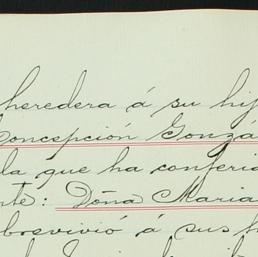 heredera á su hij
Concepción Gonzá
la que ha conferi
nte: Doña Maria
brevivió á sus h